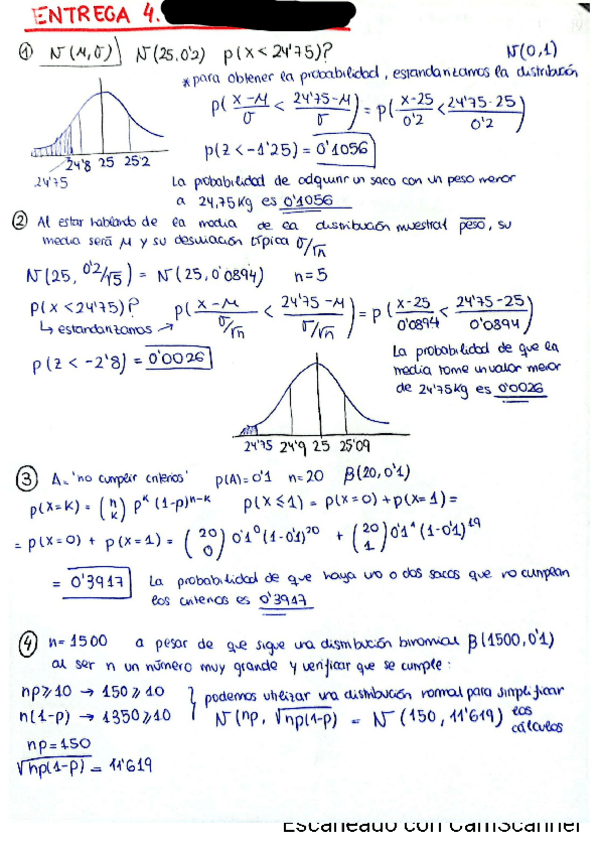 ENTREGA 4.
① N(μ,σ) N(25,0'2) p(x<24'75)? N(0,1)
*para obtener la probabilidad, estandarizamos la distribución
p(x-μ/σ < 24'75-μ/σ) = p(x-25/0'2 < 24'75-25/0'2)
p(z<-1'25) = 0'1056
24'8 25 25'2
24'75
La probabilidad de adquirir un saco con un peso menor
a 24,75kg es 0'1056
② Al estar hablando de la media de la distribución muestral peso, su
media será μ y su desviación típica σ/√n
N(25, 0'2/√5) = N(25, 0'0894) n=5
p(x<24'75)? p(x-μ/σ/√n < 24'75-μ/σ/√n) = p(x-25/0'0894 < 24'75-25/0'0894)
↳ estandarizamos →
p(z<-2'8) = 0'0026
La probabilidad de que la
media tome un valor menor
de 24'75kg es 0'0026
24'75 24'9 25 25'09
③ A="no cumplir criterios" p(A)=0'1 n=20 β(20,0'1)
p(x=k) = (n k) p^k (1-p)^n-k p(x≤1) = p(x=0)+p(x=1)=
= p(x=0) + p(x=1) = (20 0) 0'1^0 (1-0'1)^20 + (20 1) 0'1^1 (1-0'1)^19
= 0'3917 La probabilidad de que haya uno o dos sacos que no cumplan
los criterios es 0'3917
④ n=1500 a pesar de que sigue una distribución binomial β(1500,0'1)
al ser n un número muy grande y verificar que se cumple:
np≥10 → 150≥10
n(1-p) → 1350≥10
podemos utilizar una distribución normal para simplificar
N(np, √np(1-p)) = N(150, 11'619) los
cálculos
np=150
√np(1-p) = 11'619
Escaneado con CamScanner